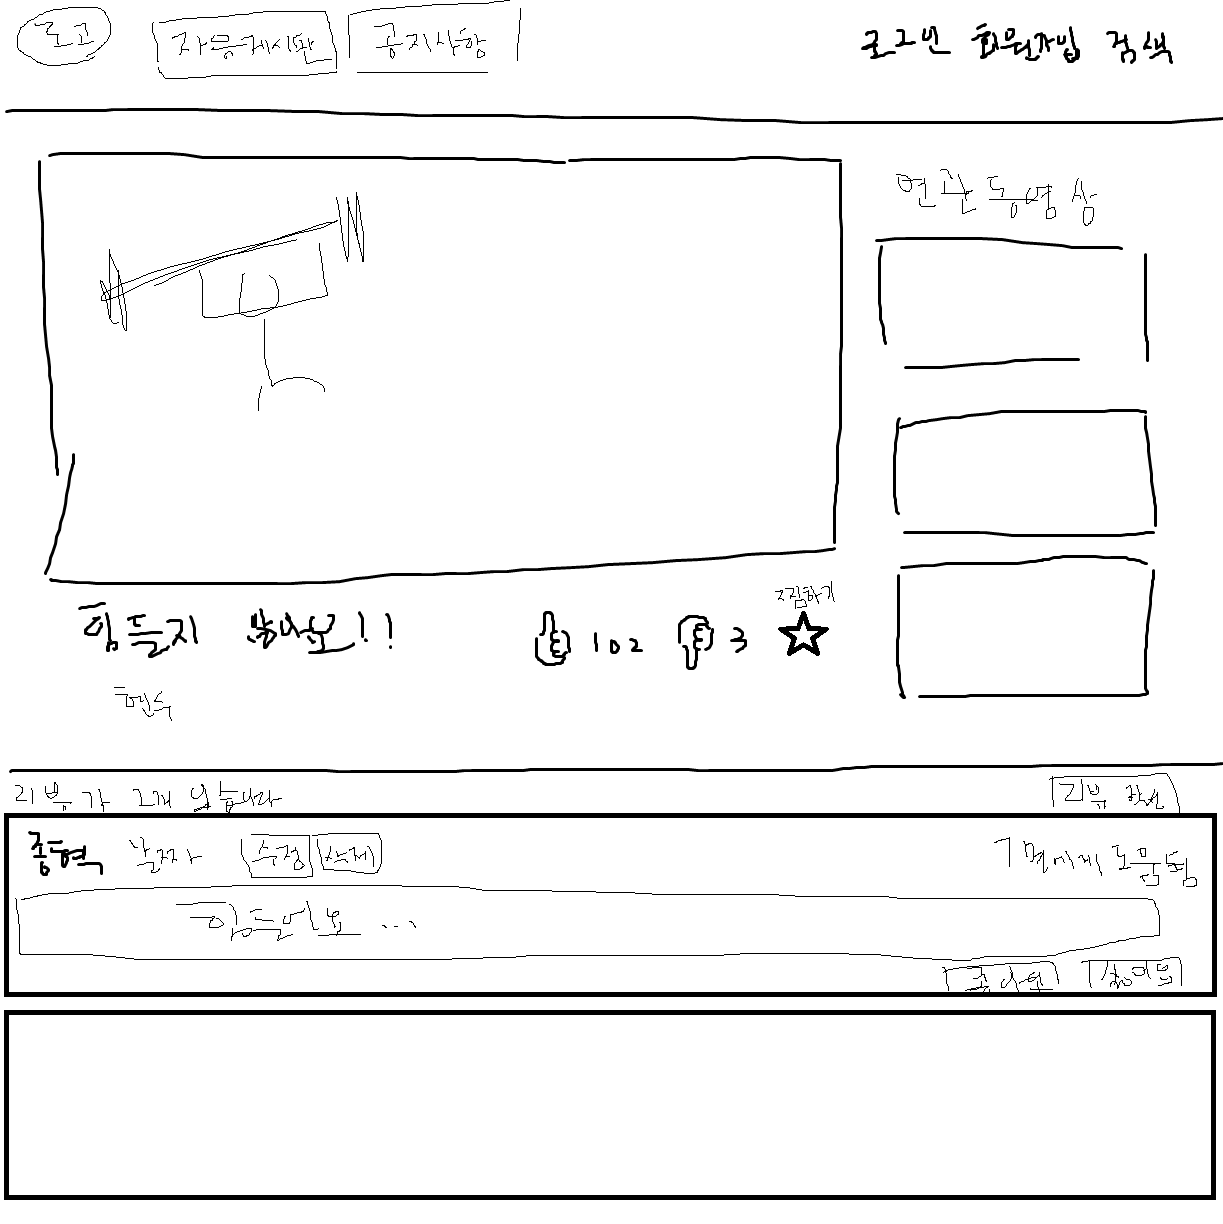 로고 자유게시판 공지사항 로그인 회원가입 검색
연관 동영상
힘들지 않아요!! 102 3 찜하기
현수
리뷰가 2개 있습니다 리뷰 작성
종혁 날짜 수정 삭제 7명에게 도움됨
힘드네요 ...
좋아요 싫어요